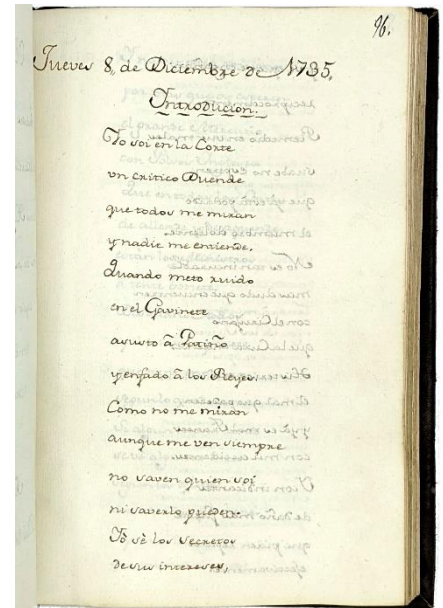 96.
Jueves 8, de Diciembre de 1735.
Introducion.
Yo soi en la Corte
un critico Duende
que todos me miran
y nadie me entiende.
Quando meto ruido
en el Gavinete
asusto â Patiño
y enfado â los Reyes.
Como no me miran
aunque me ven siempre
no saven quien soi
ni saverlo pueden.
Yo sè los secretos
de sus intereses,